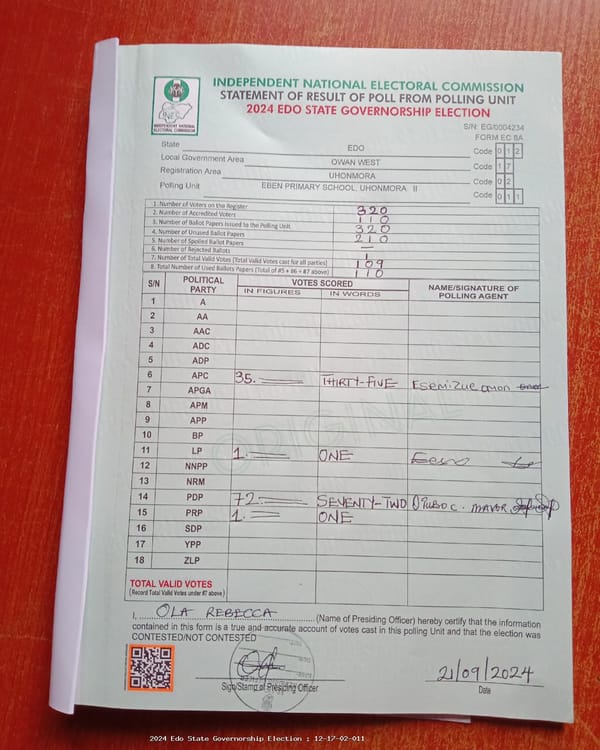 INDEPENDENT NATIONAL ELECTORAL COMMISSION
STATEMENT OF RESULT OF POLL FROM POLLING UNIT
2024 EDO STATE GOVERNORSHIP ELECTION
INDEPENDENT NATIONAL ELECTORAL COMMISSION
S/N: EG/0004234
FORM EC 8A
State EDO Code 0 1 2
Local Government Area OWAN WEST Code 1 7
Registration Area UHONMORA Code 0 2
Polling Unit EBEN PRIMARY SCHOOL, UHONMORA II Code 0 1 1
1. Number of Voters on the Register 320
2. Number of Accredited Voters 110
3. Number of Ballot Papers Issued to the Polling Unit 320
4. Number of Unused Ballot Papers 210
5. Number of Spoiled Ballot Papers —
6. Number of Rejected Ballots 1
7. Number of Total Valid Votes (Total Valid Votes cast for all parties) 109
8. Total Number of Used Ballots Papers (Total of #5 + #6 + #7 above) 110
S/N POLITICAL PARTY VOTES SCORED NAME/SIGNATURE OF POLLING AGENT
IN FIGURES IN WORDS
1 A
2 AA
3 AAC
4 ADC
5 ADP
6 APC 35. THIRTY-FIVE
7 APGA
8 APM
9 APP
10 BP
11 LP 1. ONE
12 NNPP
13 NRM
14 PDP 72 SEVENTY-TWO
15 PRP 1. ONE
16 SDP
17 YPP
18 ZLP
ORIGINAL
TOTAL VALID VOTES
(Record Total Valid Votes under #7 above)
I, OLA REBECCA (Name of Presiding Officer) hereby certify that the information
contained in this form is a true and accurate account of votes cast in this polling unit and that the election was
CONTESTED/NOT CONTESTED
Sign/Stamp of Presiding Officer
21/09/2024
Date
2024 Edo State Governorship Election : 12-17-02-011